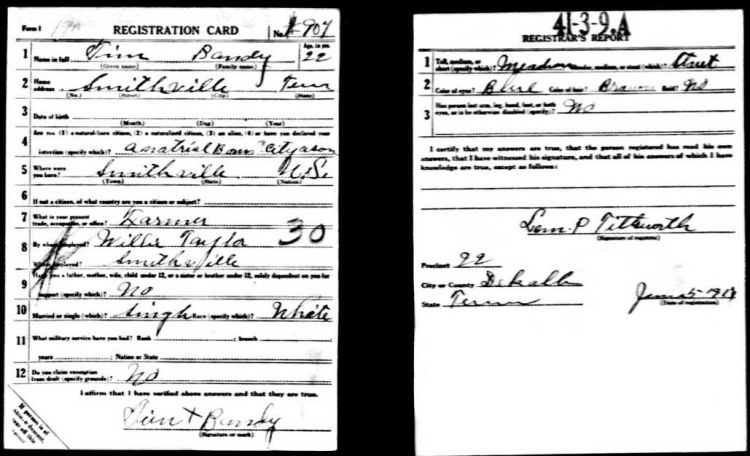 Form 1
REGISTRATION CARD No. 907
1 Name in full Tim Bandy Age, in yrs. 22
(Given name) (Family name)
2 Home address Smithville Tenn
(No.) (Street) (City) (State)
3 Date of birth
(Month) (Day) (Year)
4 Are you (1) a natural-born citizen, (2) a naturalized citizen, (3) an alien, (4) or have you declared your
intention (specify which)?
5 Where were you born? Smithville U.S.
(Town) (State) (Nation)
6 If not a citizen, of what country are you a citizen or subject?
7 What is your present trade, occupation, or office? Farmer
8 By whom employed? Willie Taylor 30
Where employed? Smithville
9 Have you a father, mother, wife, child under 12, or a sister or brother under 12, solely dependent on you for
support (specify which)? No
10 Married or single (which)? Single Race (specify which)? White
11 What military service have you had? Rank ; branch
years ; Nation or State
12 Do you claim exemption from draft (specify grounds)? No
I affirm that I have verified above answers and that they are true.
Tim + Bandy
(Signature or mark)
41-3-9.A
REGISTRAR'S REPORT
1 Tall, medium, or short (specify which)? Medium Slender, medium, or stout (which)? Stout
2 Color of eyes? Blue Color of hair? Brown Bald? No
3 Has person lost arm, leg, hand, foot, or both
eyes, or is he otherwise disabled (specify)? No
I certify that my answers are true, that the person registered has read his own
answers, that I have witnessed his signature, and that all of his answers of which I have
knowledge are true, except as follows:
Lem. P Tittsworth
(Signature of registrar)
Precinct 22
City or County Dekalb
State Tenn June 5 1917
(Date of registration)